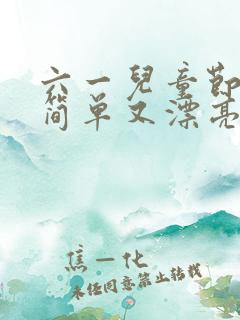 六一兒童節
简单又漂亮
焦一化
未经同意禁止转载